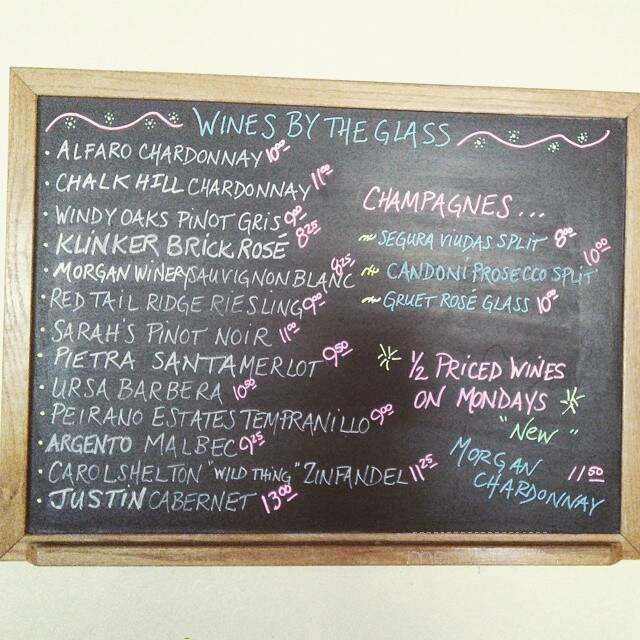 WINES BY THE GLASS
• ALFARO CHARDONNAY 10⁰⁰
• CHALK HILL CHARDONNAY 11⁰⁰
• WINDY OAKS PINOT GRIS 9⁰⁰
• KLINKER BRICK ROSÉ 8²⁵
• MORGAN WINERY SAUVIGNON BLANC 9²⁵
• RED TAIL RIDGE RIESLING 9⁰⁰
• SARAH'S PINOT NOIR 11⁰⁰
• PIETRA SANTA MERLOT 9⁵⁰
• URSA BARBERA 10⁵⁰
• PEIRANO ESTATES TEMPRANILLO 9⁰⁰
• ARGENTO MALBEC 9²⁵
• CAROL SHELTON "WILD THING" ZINFANDEL 11²⁵
• JUSTIN CABERNET 13⁰⁰
CHAMPAGNES...
~ SEGURA VIUDAS SPLIT 8⁰⁰
~ CANDONI PROSECCO SPLIT 10⁰⁰
~ GRUET ROSÉ GLASS 10⁰⁰
½ PRICED WINES
ON MONDAYS
"NEW"
MORGAN
CHARDONNAY 11⁵⁰